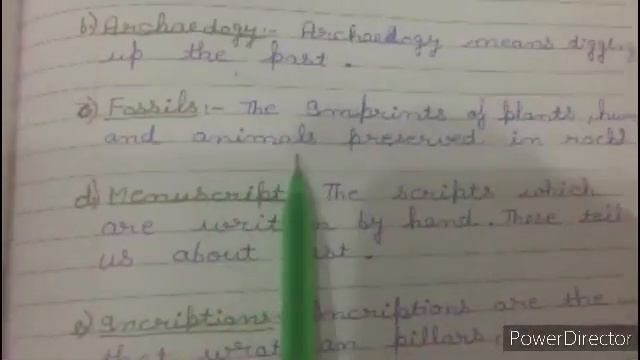 b) Archaedogy:- Archaedogy means digging
up the past.
c) Fossils:- The Imprints of plants, hum
and animals preserved in rocks
d) Menuscript The scripts which
are written by hand. These tell
us about
e) Incriptions Incriptions are the
that pillars
PowerDirector